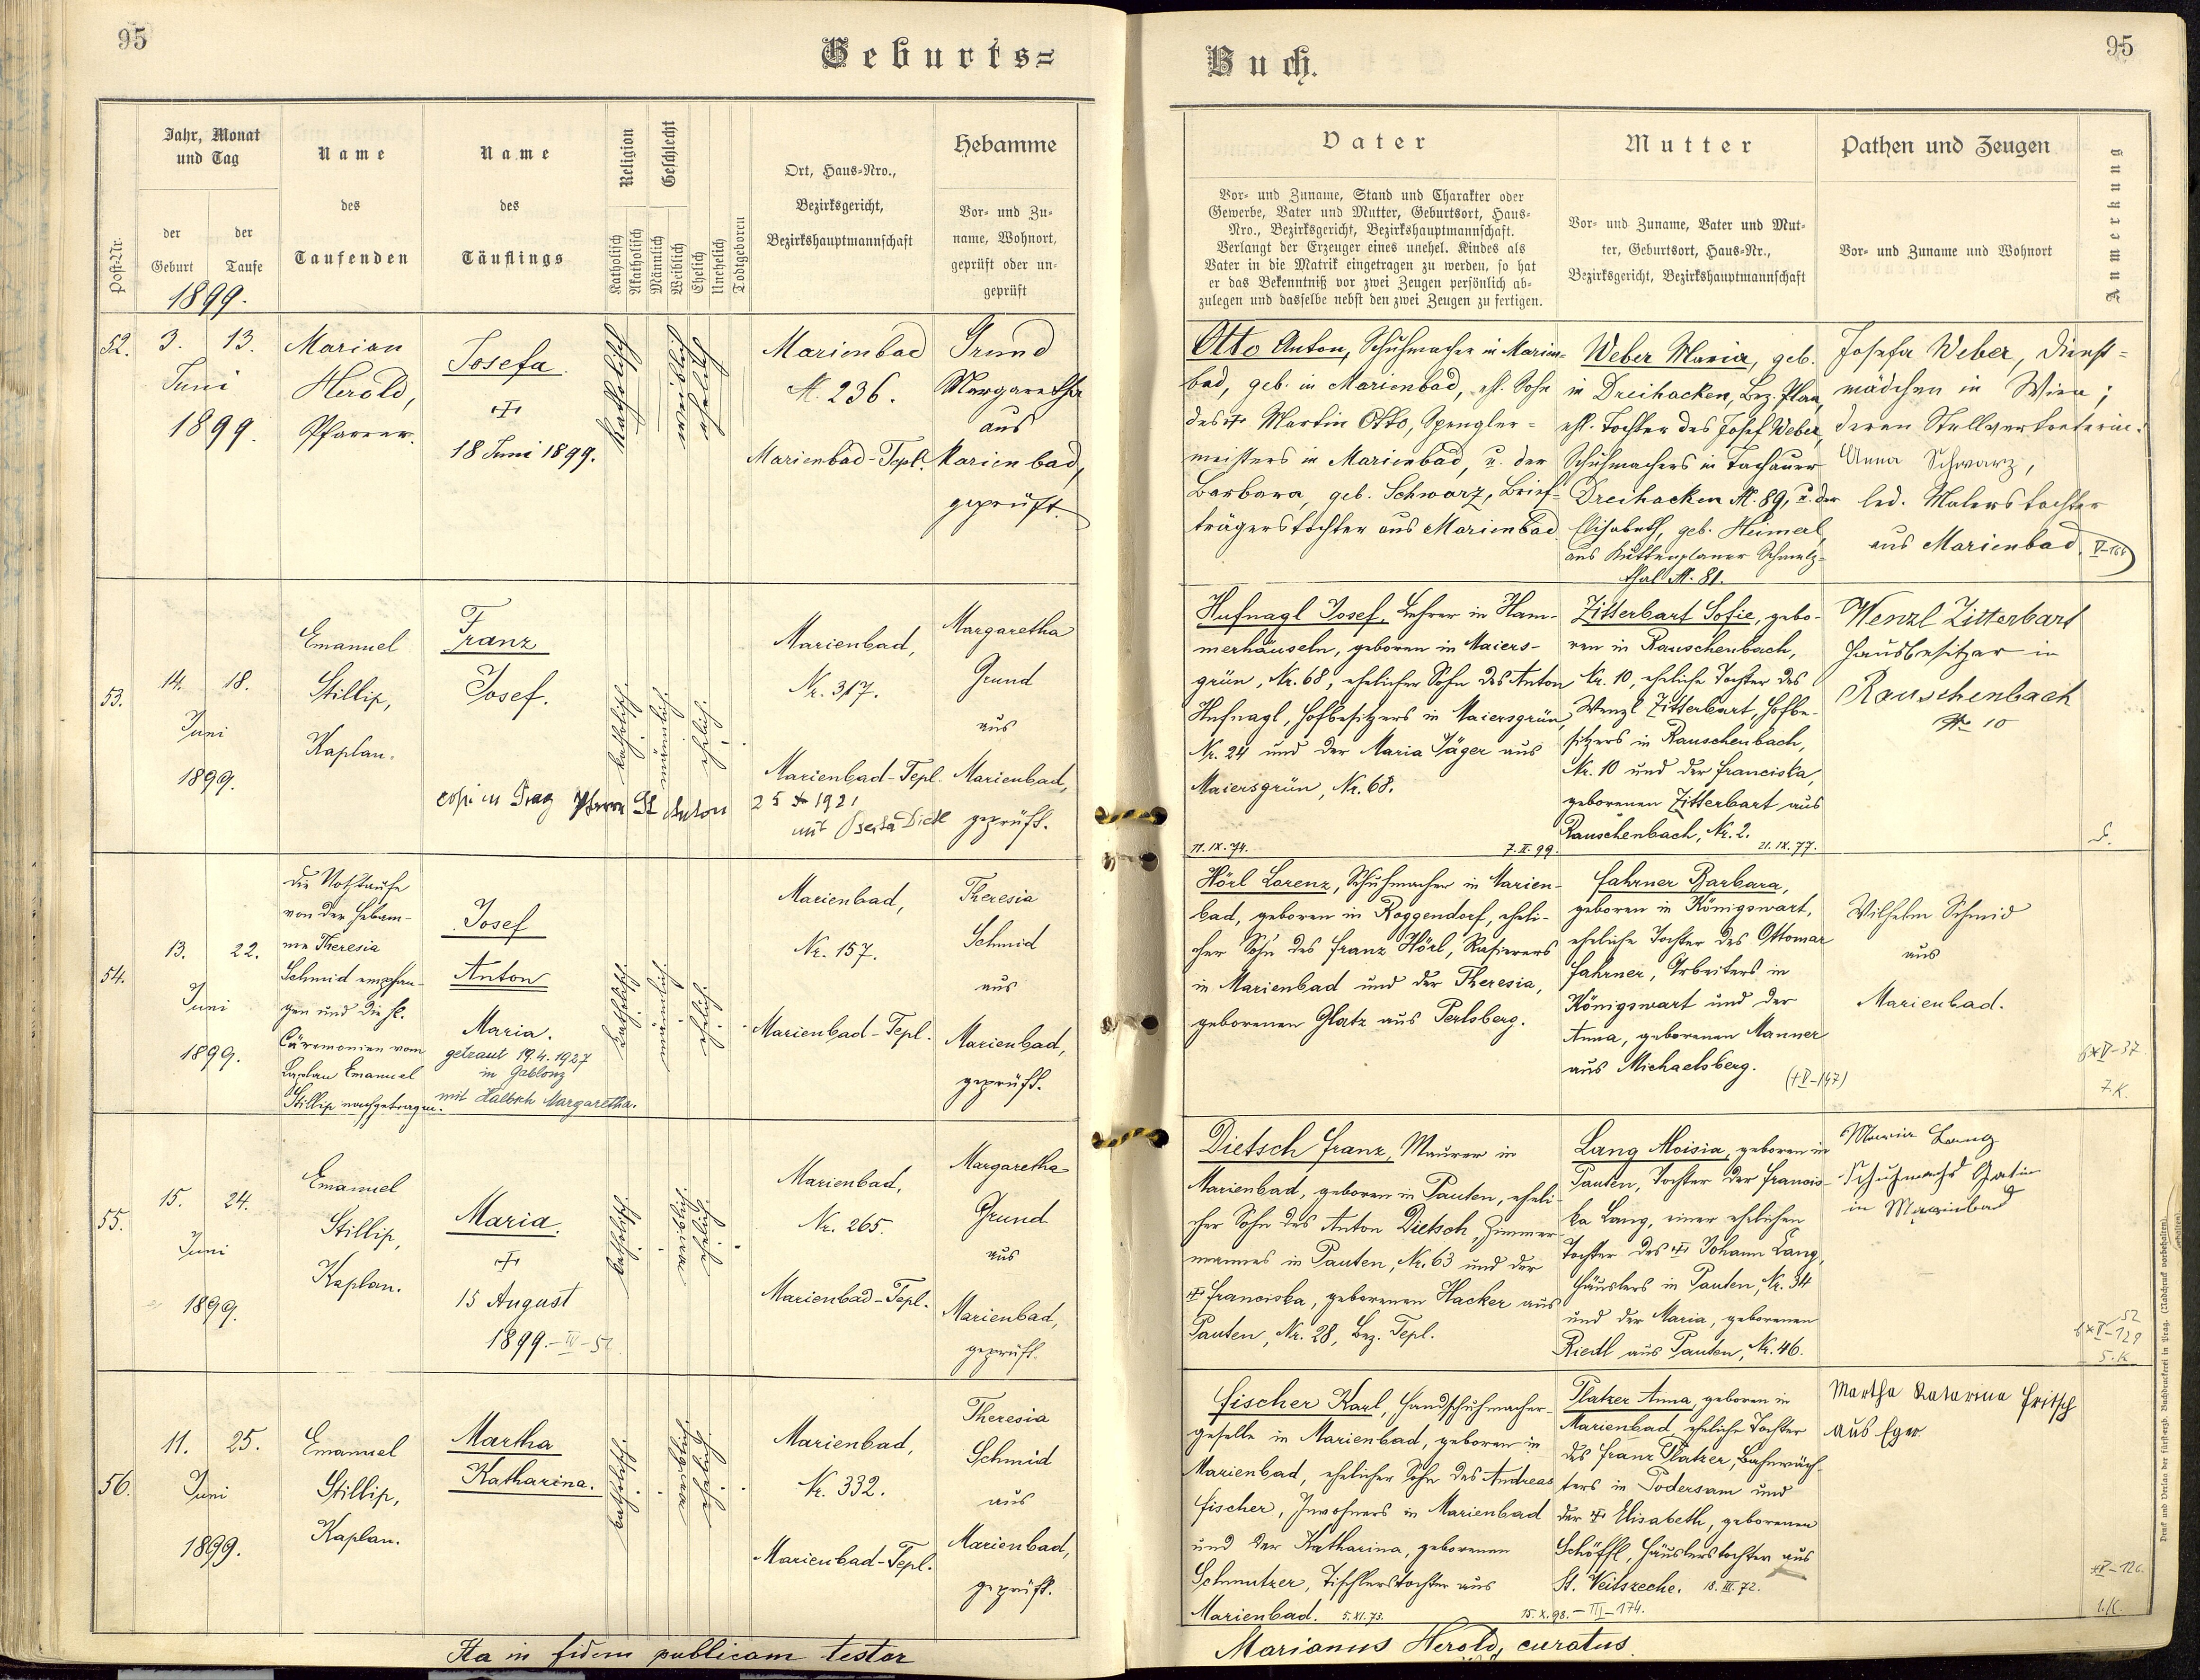 95
Geburts=
Jahr, Monat
und Tag
Name
Name
Religion
Geschlecht
Ort, Haus-Nro.,
Bezirksgericht,
Bezirkshauptmannschaft
Hebamme
Post-Nr.
der
Geburt
der
Taufe
des
Taufenden
des
Täuflings
Katholisch
Akatholisch
Männlich
Weiblich
Ehelich
Unehelich
Todtgeboren
Vor- und Zu-
name, Wohnort,
geprüft oder un-
geprüft
1899.
52.
3. 13.
Juni
1899.
Marian
Herold,
Pfarrer.
Josefa.
18 Juni 1899.
katholisch
weiblich
ehelich
Marienbad
N. 236.
Marienbad-Tepl.
Grund
Margaretha
aus
Marienbad,
geprüft.
53.
14. 18.
Juni
1899.
Emanuel
Stillip,
Kaplan.
Franz
Josef.
katholisch.
männlich
ehelich.
Marienbad,
Nr. 317.
Marienbad-Tepl.
Margaretha
Grund
aus
Marienbad,
geprüft.
cop. in Prag Pfarre St Anton
1921
mit Berta
54.
13. 22.
Juni
1899.
die Nothtaufe
von der Hebam-
me Theresia
Schmid empfan-
gen und die hl.
Cäremonien vom
Kaplan Emanuel
Stillip nachgetragen.
Josef
Anton
Maria.
getraut 19.4.1927
in Gablonz
mit Margaretha.
katholisch.
männlich
ehelich.
Marienbad,
Nr. 157.
Marienbad-Tepl.
Theresia
Schmid
aus
Marienbad,
geprüft.
55.
15. 24.
Juni
1899.
Emanuel
Stillip,
Kaplan.
Maria.
15 August
1899.
katholisch
weiblich
ehelich
Marienbad,
Nr. 265.
Marienbad-Tepl.
Margaretha
Grund
aus
Marienbad,
geprüft.
56.
11. 25.
Juni
1899.
Emanuel
Stillip,
Kaplan.
Martha
Katharina.
katholisch.
weiblich
ehelich
Marienbad,
Nr. 332.
Marienbad-Tepl.
Theresia
Schmid
aus
Marienbad,
geprüft.
Ita in fidem publicam testor
Buch.
95
Vater
Mutter
Pathen und Zeugen
Anmerkung
Vor- und Zuname, Stand und Charakter oder
Gewerbe, Vater und Mutter, Geburtsort, Haus-
Nro., Bezirksgericht, Bezirkshauptmannschaft.
Verlangt der Erzeuger eines unehel. Kindes als
Vater in die Matrik eingetragen zu werden, so hat
er das Bekenntniß vor zwei Zeugen persönlich ab-
zulegen und dasselbe nebst den zwei Zeugen zu fertigen.
Vor- und Zuname, Vater und Mut-
ter, Geburtsort, Haus-Nr.,
Bezirksgericht, Bezirkshauptmannschaft
Vor- und Zuname und Wohnort
Otto Anton, Schuhmacher in Marien-
bad, geb. in Marienbad, ehl. Sohn
des Martin Otto, Spengler-
meisters in Marienbad, u. der
Barbara, geb. Schwarz, Brief-
trägerstochter aus Marienbad
Weber Maria, geb.
in Dreihacken, Bez. Plan,
ehl. Tochter des Josef Weber,
Schuhmachers in Tachauer
Dreihacken N. 89, u. der
Elisabeth, geb. Heimerl,
aus Kuttenplaner Schmelz-
thal N. 81.
Josefa Weber, Dienst-
mädchen in Wien;
deren Stellvertreterin:
Anna Schwarz,
led. Malerstochter
aus Marienbad.
Hufnagl Josef, Lehrer in Ham-
merhäuseln, geboren in Maiers-
grün, Nr. 68, ehelicher Sohn des Anton
Hufnagl, Hofbesitzers in Maiersgrün,
Nr. 24 und der Maria Jäger aus
Maiersgrün, Nr. 68.
11. IX. 74.
7. II. 99.
Zitterbart Sofie, gebo-
ren in Rauschenbach,
Nr. 10, eheliche Tochter des
Wenzl Zitterbart, Hofbe-
sitzers in Rauschenbach,
Nr. 10 und der Franciska,
geborenen Zitterbart aus
Rauschenbach, Nr. 2.
21. IX. 77.
Wenzl Zitterbart
Hausbesitzer in
Rauschenbach
N 10
Hörl Lorenz, Schuhmacher in Marien-
bad, geboren in Roggendorf, eheli-
cher Sohn des Franz Hörl, Rasierers
in Marienbad und der Theresia,
geborenen Glatz aus Perlsberg.
Fahrner Barbara,
geboren in Königswart,
eheliche Tochter des Ottomar
Fahrner, Arbeiters in
Königswart und der
Anna, geborenen Manner
aus Michaelsberg.
(+V-147)
Wilhelm Schmid
aus
Marienbad.
7.K.
Dietsch Franz, Maurer in
Marienbad, geboren in Pauten, eheli-
cher Sohn des Anton Dietsch, Zimmer-
mannes in Pauten, Nr. 63 und der
Franciska, geborenen Hacker aus
Pauten, Nr. 28, Bez. Tepl.
Lang Aloisia, geboren in
Pauten, Tochter der Francis-
ka Lang, einer ehelichen
Tochter des Johann Lang,
Häuslers in Pauten, Nr. 34
und der Maria, geborenen
Riedl aus Pauten, Nr. 46.
Maria Lang
Schuhmachers Gatin
in Marienbad
5.K.
Fischer Karl, Handschuhmacher-
geselle in Marienbad, geboren in
Marienbad, ehelicher Sohn des Andreas
Fischer, Inwohners in Marienbad
und der Katharina, geborenen
Schmutzer, Tischlerstochter aus
Marienbad. 5. XI. 73.
15. X. 98. - III-174.
Platzer Anna, geboren in
Marienbad, eheliche Tochter
des Franz Platzer, Bahnwäch-
ters in Podersam und
der Elisabeth, geborenen
Schöffl, Häuslerstochter aus
St. Veitszeche. 18. III. 72.
Martha Katarina Fritsch
aus Eger
1.K.
Marianus Herold, curatus.
Druck und Verlag der fürst-erzb. Buchdruckerei in Prag. (Nachdruck vorbehalten).